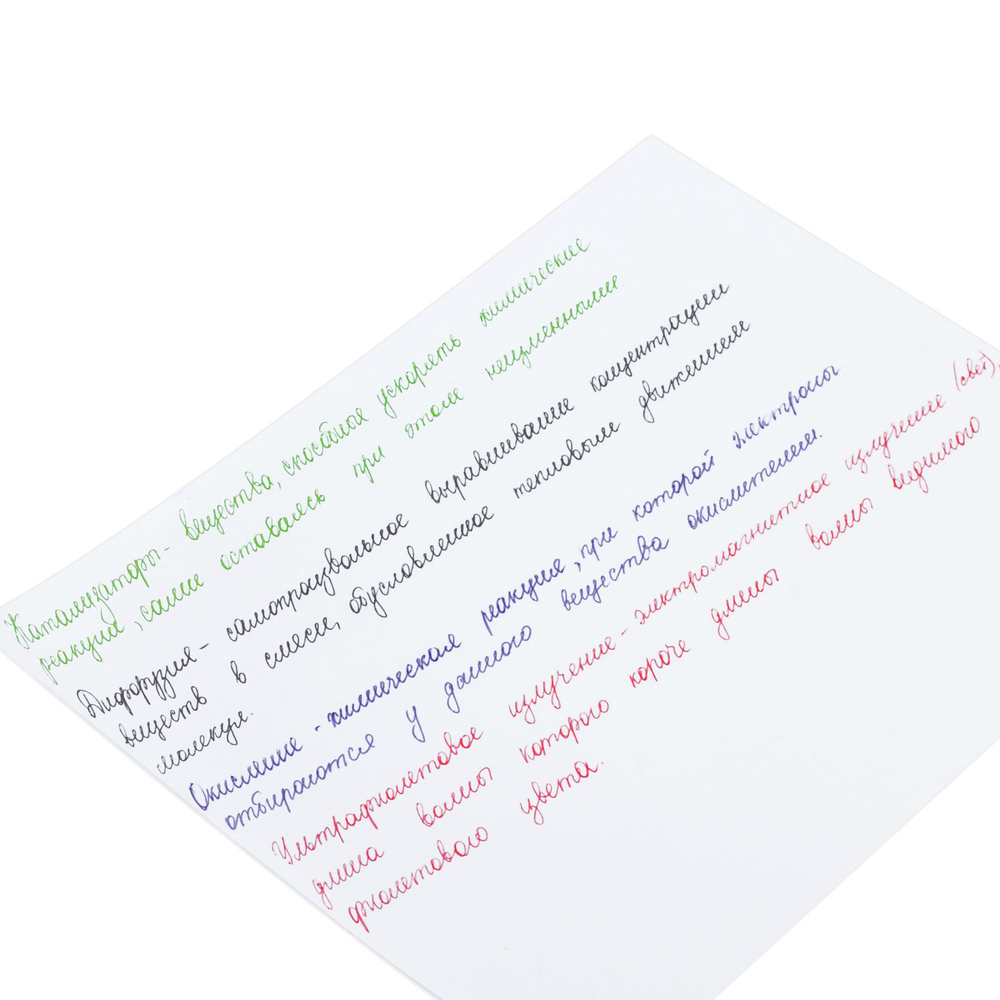 Катализаторы - вещества, способные ускорять химические
реакции, сами оставаясь при этом неизменными.
Диффузия - самопроизвольное выравнивание концентрации
веществ в смеси, обусловленное тепловым движением
молекул.
Окисление - химическая реакция, при которой электроны
отбираются у данного вещества окислителем.
Ультрафиолетовое излучение - электромагнитное излучение (свет),
длина волны которого короче длины волны видимого
фиолетового цвета.